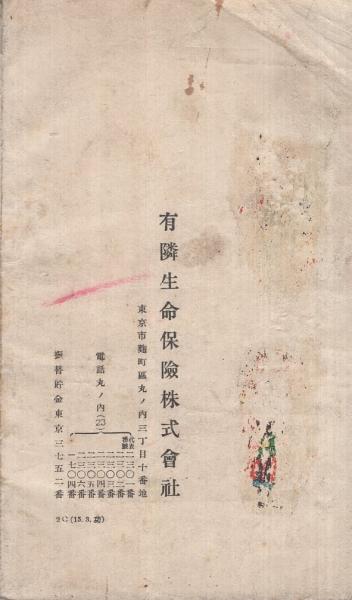 有隣生命保險株式會社
東京市麴町區丸ノ內三丁目十番地
電話丸ノ內(23)
代表番號二三〇一番
二三〇二番
二三〇三番
二三〇四番
二三〇五番
二三〇六番
一七〇四番
振替貯金東京三七五二番
2C(15.3.功)